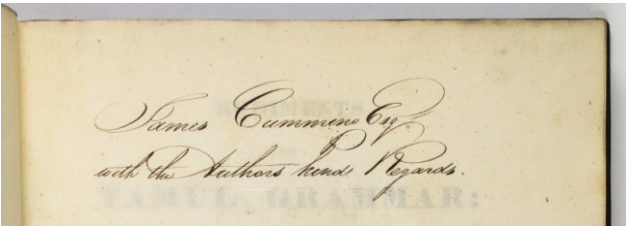 RUDIMENTS
James Cummins Esq.
with the Authors kind Regards.
TAMUL GRAMMAR: